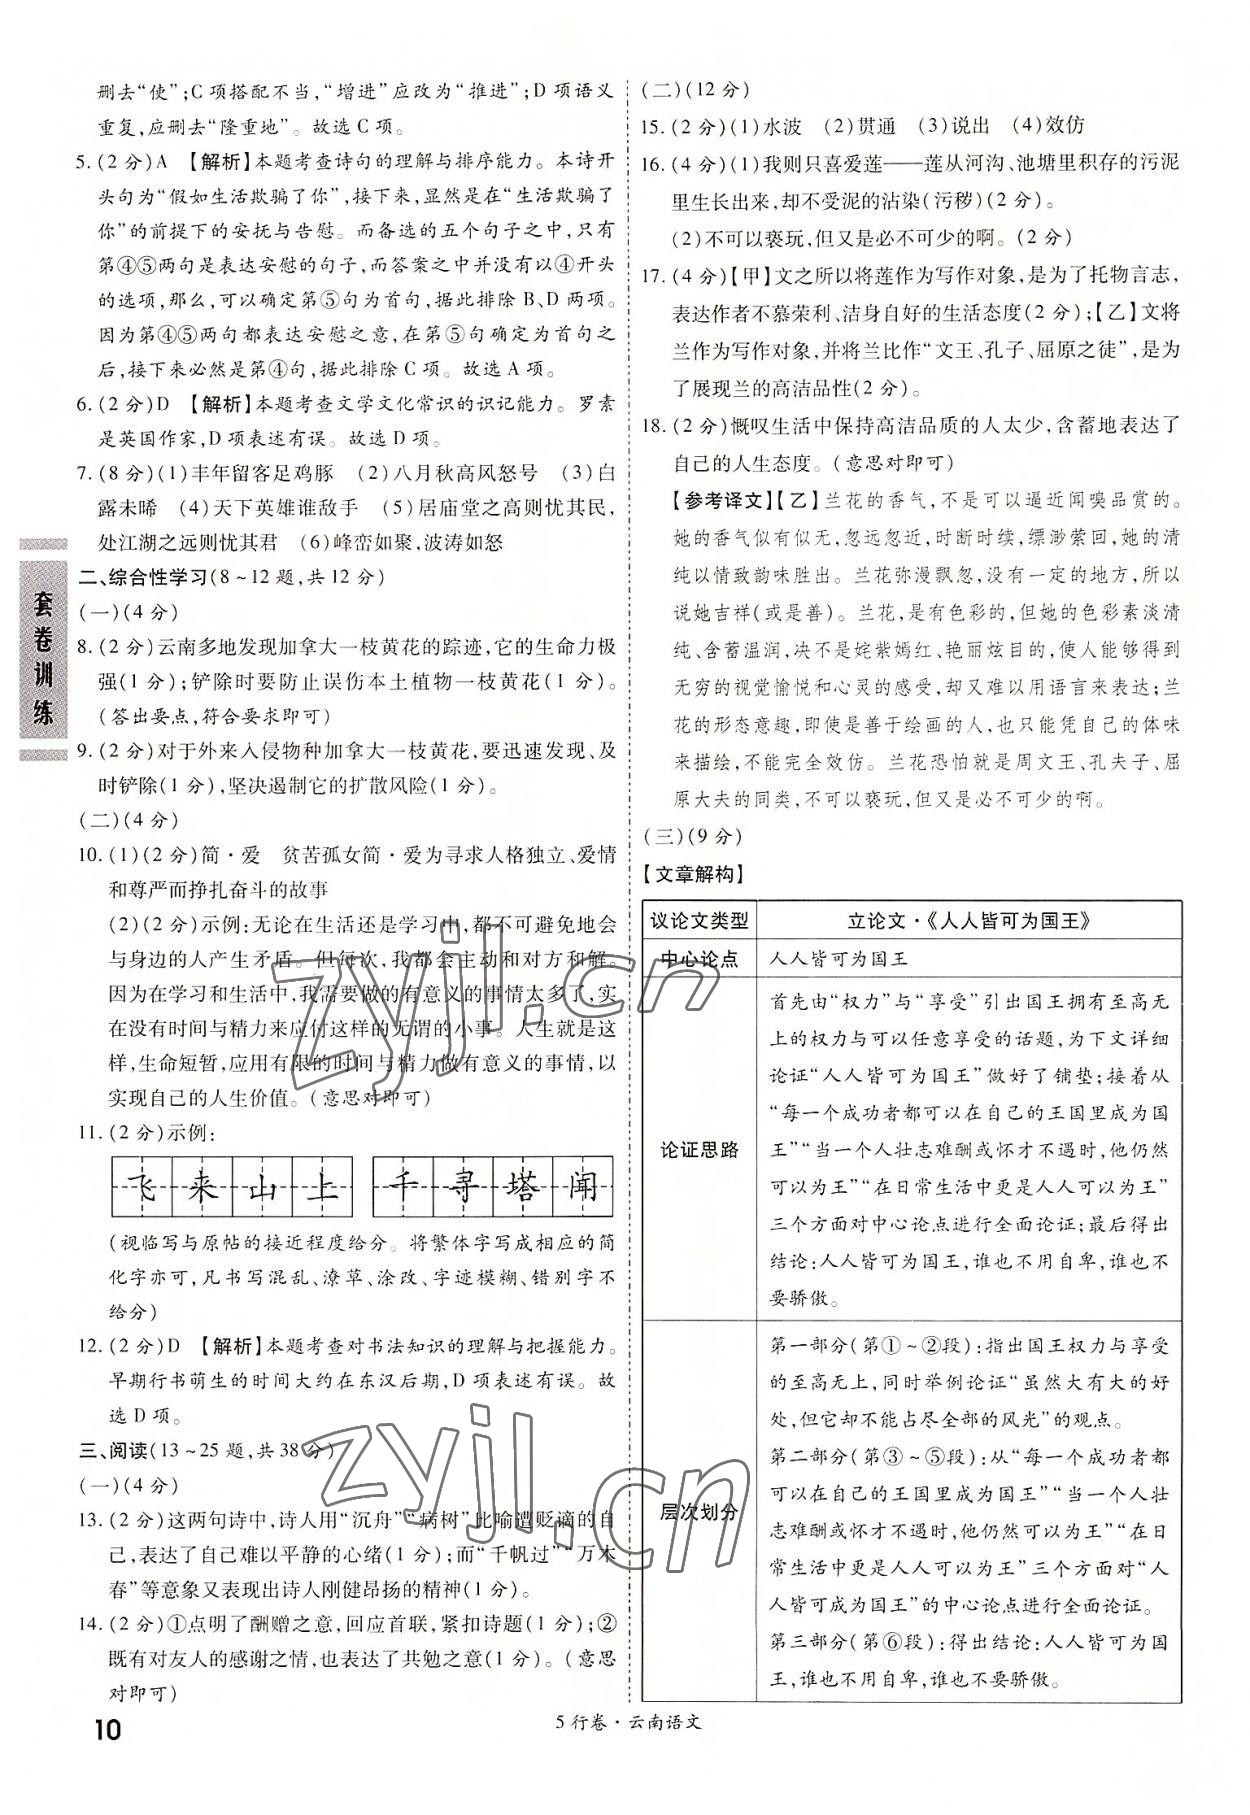 删去“使”;C项搭配不当,“增进”应改为“推进”;D项语义
重复,应删去“隆重地”。故选C项。
5.(2分)A 【解析】本题考查诗句的理解与排序能力。本诗开
头句为“假如生活欺骗了你”,接下来,显然是在“生活欺骗了
你”的前提下的安抚与告慰。而备选的五个句子之中,只有
第④⑤两句是表达安慰的句子,而答案之中并没有以④开头
的选项,那么,可以确定第⑤句为首句,据此排除B、D两项。
因为第④⑤两句都表达安慰之意,在第⑤句确定为首句之
后,接下来必然是第④句,据此排除C项。故选A项。
6.(2分)D 【解析】本题考查文学文化常识的识记能力。罗素
是英国作家,D项表述有误。故选D项。
7.(8分)(1)丰年留客足鸡豚 (2)八月秋高风怒号 (3)白
露未晞 (4)天下英雄谁敌手 (5)居庙堂之高则忧其民,
处江湖之远则忧其君 (6)峰峦如聚,波涛如怒
二、综合性学习(8~12题,共12分)
(一)(4分)
8.(2分)云南多地发现加拿大一枝黄花的踪迹,它的生命力极
强(1分);铲除时要防止误伤本土植物一枝黄花(1分)。
(答出要点,符合要求即可)
9.(2分)对于外来入侵物种加拿大一枝黄花,要迅速发现、及
时铲除(1分),坚决遏制它的扩散风险(1分)。
(二)(4分)
10.(1)(2分)简·爱 贫苦孤女简·爱为寻求人格独立、爱情
和尊严而挣扎奋斗的故事
(2)(2分)示例:无论在生活还是学习中,都不可避免地会
与身边的人产生矛盾。但每次,我都会主动和对方和解。
因为在学习和生活中,我需要做的有意义的事情太多了,实
在没有时间与精力来应付这样的无谓的小事。人生就是这
样,生命短暂,应用有限的时间与精力做有意义的事情,以
实现自己的人生价值。(意思对即可)
11.(2分)示例:
飞来山上 千寻塔闻
(视临写与原帖的接近程度给分。将繁体字写成相应的简
化字亦可,凡书写混乱、潦草、涂改、字迹模糊、错别字不
给分)
12.(2分)D 【解析】本题考查对书法知识的理解与把握能力。
早期行书萌生的时间大约在东汉后期,D项表述有误。故
选D项。
三、阅读(13~25题,共38分)
(一)(4分)
13.(2分)这两句诗中,诗人用“沉舟”“病树”比喻遭贬谪的自
己,表达了自己难以平静的心绪(1分);而“千帆过”“万木
春”等意象又表现出诗人刚健昂扬的精神(1分)。
14.(2分)①点明了酬赠之意,回应首联,紧扣诗题(1分);②
既有对友人的感谢之情,也表达了共勉之意(1分)。(意思
对即可)
(二)(12分)
15.(2分)(1)水波 (2)贯通 (3)说出 (4)效仿
16.(4分)(1)我则只喜爱莲——莲从河沟、池塘里积存的污泥
里生长出来,却不受泥的沾染(污秽)(2分)。
(2)不可以亵玩,但又是必不可少的啊。(2分)
17.(4分)【甲】文之所以将莲作为写作对象,是为了托物言志,
表达作者不慕荣利、洁身自好的生活态度(2分);【乙】文将
兰作为写作对象,并将兰比作“文王、孔子、屈原之徒”,是为
了展现兰的高洁品性(2分)。
18.(2分)慨叹生活中保持高洁品质的人太少,含蓄地表达了
自己的人生态度。(意思对即可)
【参考译文】【乙】兰花的香气,不是可以逼近闻嗅品赏的。
她的香气似有似无,忽远忽近,时断时续,缥渺萦回,她的清
纯以情致韵味胜出。兰花弥漫飘忽,没有一定的地方,所以
说她吉祥(或是善)。兰花,是有色彩的,但她的色彩素淡清
纯、含蓄温润,决不是姹紫嫣红、艳丽炫目的,使人能够得到
无穷的视觉愉悦和心灵的感受,却又难以用语言来表达;兰
花的形态意趣,即使是善于绘画的人,也只能凭自己的体味
来描绘,不能完全效仿。兰花恐怕就是周文王、孔夫子、屈
原大夫的同类,不可以亵玩,但又是必不可少的啊。
(三)(9分)
【文章解构】
议论文类型 立论文·《人人皆可为国王》
中心论点 人人皆可为国王
论证思路
首先由“权力”与“享受”引出国王拥有至高无
上的权力与可以任意享受的话题,为下文详细
论证“人人皆可为国王”做好了铺垫;接着从
“每一个成功者都可以在自己的王国里成为国
王”“当一个人壮志难酬或怀才不遇时,他仍然
可以为王”“在日常生活中更是人人可以为王”
三个方面对中心论点进行全面论证;最后得出
结论:人人皆可为国王,谁也不用自卑,谁也不
要骄傲。
层次划分
第一部分(第①~②段):指出国王权力与享受
的至高无上,同时举例论证“虽然大有大的好
处,但它却不能占尽全部的风光”的观点。
第二部分(第③~⑤段):从“每一个成功者都
可以在自己的王国里成为国王”“当一个人壮
志难酬或怀才不遇时,他仍然可以为王”“在日
常生活中更是人人可以为王”三个方面对“人
人皆可成为国王”的中心论点进行全面论证。
第三部分(第⑥段):得出结论:人人皆可为国
王,谁也不用自卑,谁也不要骄傲。
套卷训练
10
5行卷·云南语文
zyjl.cn
zyjl.cn